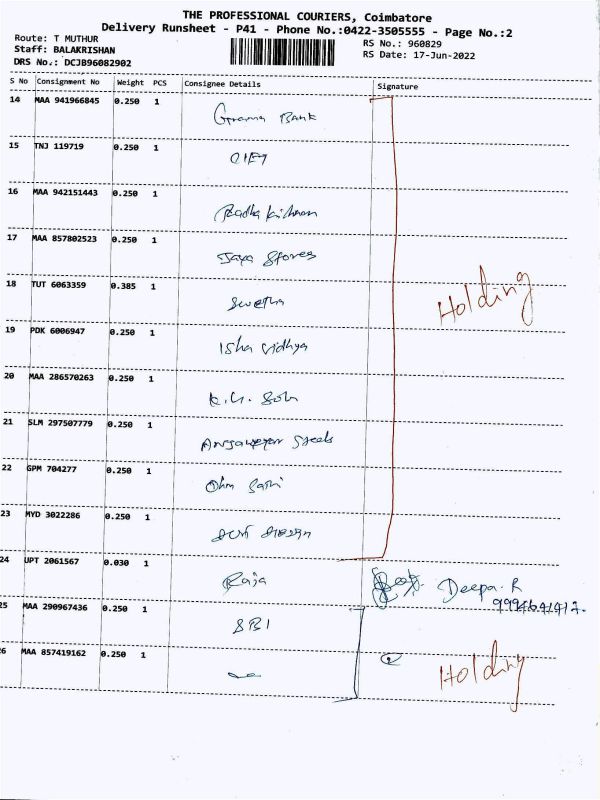 THE PROFESSIONAL COURIERS, Coimbatore
Delivery Runsheet - P41 - Phone No.:0422-3505555 - Page No.:2
Route: T MUTHUR
RS No.: 960829
Staff: BALAKRISHAN
RS Date: 17-Jun-2022
DRS No.: DCJB96082902
S No Consignment No Weight PCS Consignee Details Signature
14 MAA 941966845 0.250 1 Grama Bank
15 TNJ 119719 0.250 1
16 MAA 942151443 0.250 1 Radha Krishnan
17 MAA 857802523 0.250 1 Jaya Stores
18 TUT 6063359 0.385 1 Swetha
Holding
19 PDK 6006947 0.250 1 Isha Vidhya
20 MAA 286570263 0.250 1
21 SLM 297507779 0.250 1 Steels
22 GPM 704277 0.250 1 Ohm
23 MYD 3022286 0.250 1
24 UPT 2061567 0.030 1 Raja Deepa. R
25 MAA 290967436 0.250 1 SBI
26 MAA 857419162 0.250 1 Holding